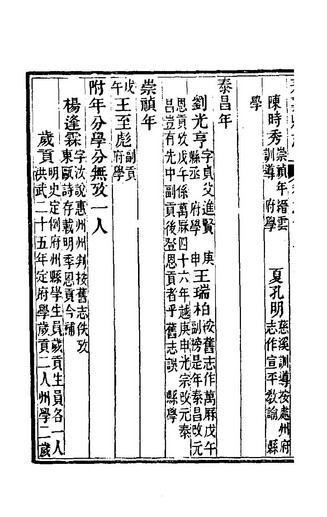 陳時秀
崇禎年潛雲
訓導 府學
夏孔明
慈溪訓導按處州府
志作宣平教諭 縣
學
泰昌年
劉光亨
字貞父進賢
縣丞 府學
庚
申
王瑞柏
按舊志作萬厤戊午
副榜是年泰昌改元
恩貢攷戊午係萬厤四十六年越庚申光宗改元泰
昌豈有先中副貢後登恩貢者乎舊志誤 縣學
崇禎年
戊
王至彪
副貢
府學
附年分學分無攷一人
楊逢霖
字汝說惠州州判按舊志佚攷
東甌詩存載明季恩貢今補
歲貢
明史定例府州縣學生員歲貢生員各一人
洪武二十五年定府學歲貢二人州學二歲